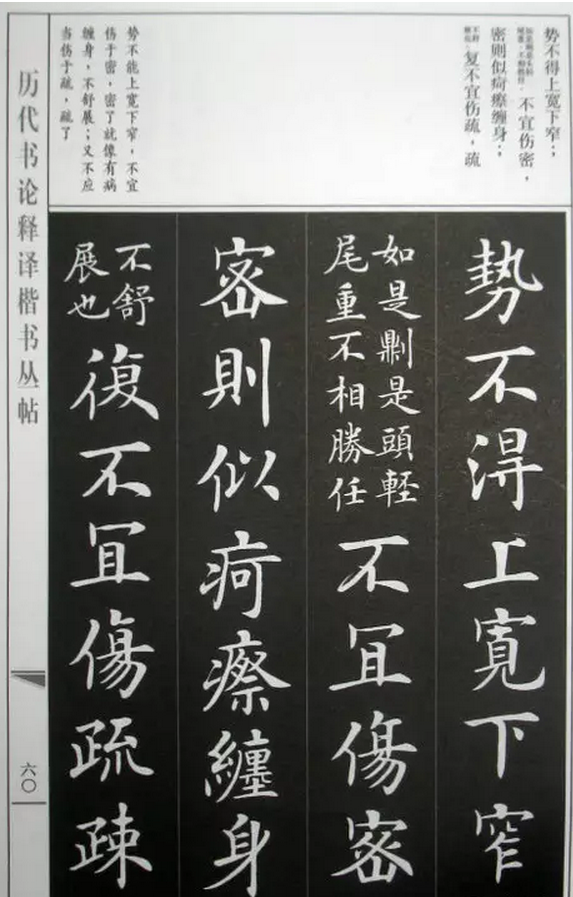 势不得上宽下窄；
如是则是头轻
尾重，不相胜任。
不宜伤密，
密则似疴瘵缠身；
不舒
展也。
复不宜伤疏，疏
势不能上宽下窄，不宜
伤于密，密了就像有病
缠身，不舒展；又不应
当伤于疏，疏了
勢不淂上寬下窄
如是則是頭輕
尾重不相勝任
不冝傷密
密則似疴瘵纏身
不舒
展也
復不冝傷疏疎
历代书论释译楷书丛帖
六〇